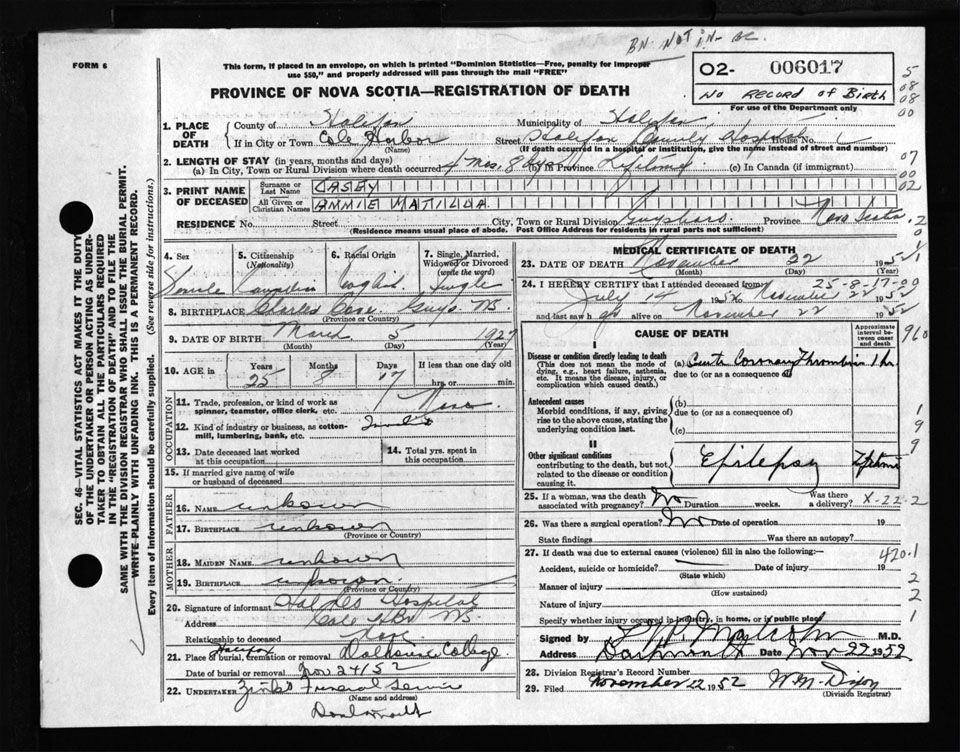 BN. NOT IN- BC.
FORM 6
This form, if placed in an envelope, on which is printed "Dominion Statistics—Free, penalty for improper
use $50," and properly addressed will pass through the mail "FREE"
02- 006017
NO RECORD OF BIRTH
For use of the Department only
PROVINCE OF NOVA SCOTIA—REGISTRATION OF DEATH
5
08
08
00
07
00
02
2
0
0
1. PLACE OF DEATH County of Halifax Municipality of Halifax
If in City or Town Cole Harbor Street Halifax County Hospital House No.
(Name) (If death occurred in a hospital or institution, give the name instead of street and number)
2. LENGTH OF STAY (in years, months and days)
(a) In City, Town or Rural Division where death occurred 4 mos. 8 dys (b) In Province Lifelong (c) In Canada (if immigrant)
3. PRINT NAME OF DECEASED Surname or Last Name CASEY
All Given or Christian Names ANNIE MATILDA
RESIDENCE No. Street City, Town or Rural Division Guysboro Province Nova Scotia
(Residence means usual place of abode. Post Office Address for residents in rural parts not sufficient)
SEC. 46—VITAL STATISTICS ACT MAKES IT THE DUTY
OF THE UNDERTAKER OR PERSON ACTING AS UNDER-
TAKER TO OBTAIN ALL THE PARTICULARS REQUIRED
IN THE "REGISTRATION OF DEATH" AND TO FILE THE
SAME WITH THE DIVISION REGISTRAR WHO SHALL ISSUE THE BURIAL PERMIT.
WRITE PLAINLY WITH UNFADING INK. THIS IS A PERMANENT RECORD.
Every item of information should be carefully supplied. (See reverse side for instructions.)
4. Sex 5. Citizenship (Nationality) 6. Racial Origin 7. Single, Married, Widowed or Divorced (write the word)
Female Canadian English Single
8. BIRTHPLACE Charles Cove Guys NS.
(Province or Country)
9. DATE OF BIRTH March 5 1927
(Month) (Day) (Year)
10. AGE in Years Months Days If less than one day old
25 8 17 hrs. or min.
OCCUPATION
11. Trade, profession, or kind of work as
spinner, teamster, office clerk, etc. None
12. Kind of industry or business, as cotton-
mill, lumbering, bank, etc.
13. Date deceased last worked
at this occupation
14. Total yrs. spent in
this occupation
15. If married give name of wife
or husband of deceased
FATHER
16. NAME unknown
17. BIRTHPLACE unknown
(Province or Country)
MOTHER
18. MAIDEN NAME unknown
19. BIRTHPLACE unknown.
(Province or Country)
20. Signature of informant Hospital
Address Cole Hbr NS.
Relationship to deceased None
21. Place of burial, cremation or removal Halifax Dalhousie College.
Date of burial or removal Nov 24 1952
22. UNDERTAKER Zink's Funeral Service
(Name and address)
Dartmouth
MEDICAL CERTIFICATE OF DEATH
23. DATE OF DEATH November 22 195
(Month) (Day) (Year)
24. I HEREBY CERTIFY that I attended deceased from 25-8-17-00
July 14 1952 to November 22 1952
and last saw her alive on November 22 1952
CAUSE OF DEATH
Approximate interval between onset and death
960
I
Disease or condition directly leading to death (a) Acute Coronary Thrombosis 1 hr
(This does not mean the mode of
dying, e.g., heart failure, asthenia,
etc. It means the disease, injury, or
complication which caused death.)
due to (or as a consequence of)
Antecedent causes
Morbid conditions, if any, giving
rise to the above cause, stating the
underlying condition last.
(b)
due to (or as a consequence of)
(c)
1
9
9
II
Other significant conditions
contributing to the death, but not
related to the disease or condition
causing it.
Epilepsy Lifetime
25. If a woman, was the death
associated with pregnancy? No Duration weeks. Was there a delivery? X-22-2
26. Was there a surgical operation? No Date of operation 19
State findings Was there an autopsy?
27. If death was due to external causes (violence) fill in also the following:— 420.1
Accident, suicide or homicide? Date of injury 19
(State which)
Manner of injury 2
(How sustained)
Nature of injury 2
Specify whether injury occurred in industry, in home, or in public place 1
Signed by Malcolm M.D.
Address Dartmouth Date Nov 22 1952
28. Division Registrar's Record Number
29. Filed November 1952 W.M. Dixon
(Division Registrar)